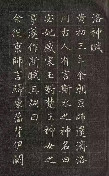 洛神賦
黃初三年余朝京師還濟洛
川古人有言斯水之神名曰
宓妃感宋玉對楚王神女之
事遂作斯賦其詞曰
余從京師言歸東藩背伊闕